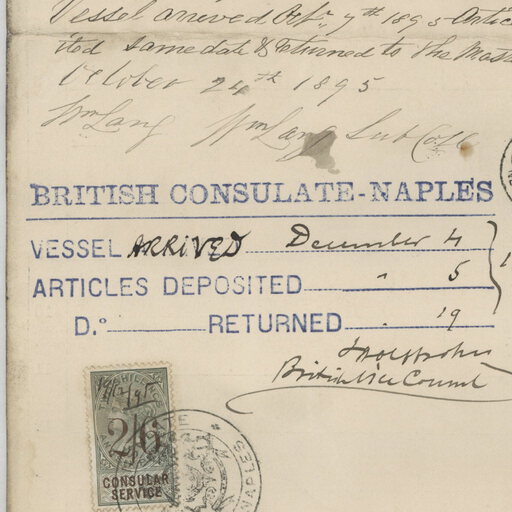 Vessel arrived Octr. 7th 1895 Artic
ted same date & returned to the Mast
October 24th 1895
Wm Lang Wm Lang Sub Coll
BRITISH CONSULATE-NAPLES
VESSEL ARRIVED December 4
ARTICLES DEPOSITED " 5
D.º RETURNED . 19
British Vice Consul
19/12/95
2/6
CONSULAR
SERVICE
NAPLES